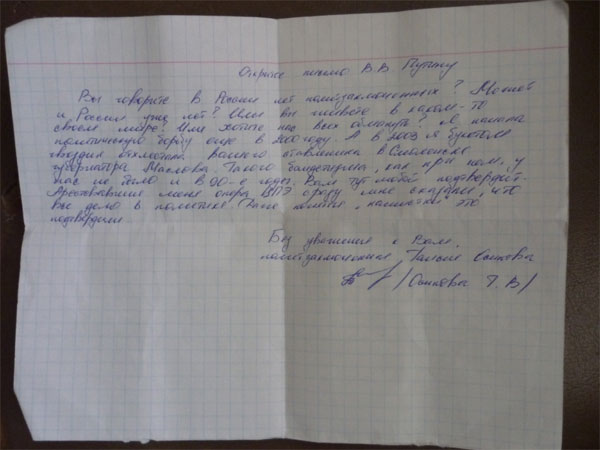 Открытое письмо В.В. Путину
Вы говорите в России нет политзаключенных? Может
и России уже нет? Или Вы живёте в каком-то
своём мире? Или хотите нас всех обмануть? Я начала
политическую борьбу еще в 2000 году. А в 2003 я букетом
гвоздик отхлестала Вашего ставленника в Смоленске
губернатора Маслова. Такого бандитизма, как при нем, у
нас не было и в 90-е годы. Вам тут любой подтвердит.
Арестовавшие меня опера ЦПЭ сразу мне сказали, что
все дело в политике. Даже понятые, наркоманки это
подтвердили
Без уважения к Вам,
политзаключенная Таисия Осипова
/Осипова Т. В/